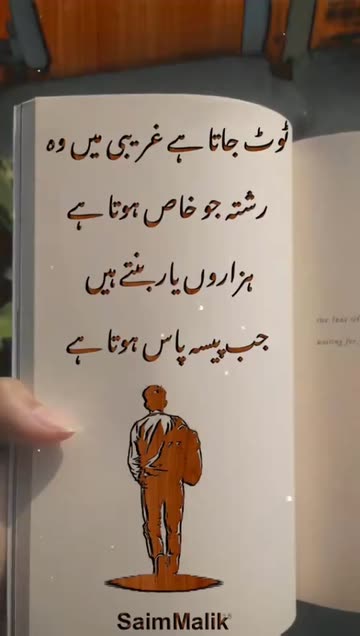 ٹوٹ جاتا ہے غریبی میں وہ
رشتہ جو خاص ہوتا ہے
ہزاروں یار بنتے ہیں
جب پیسہ پاس ہوتا ہے
SaimMalik
waiting for,